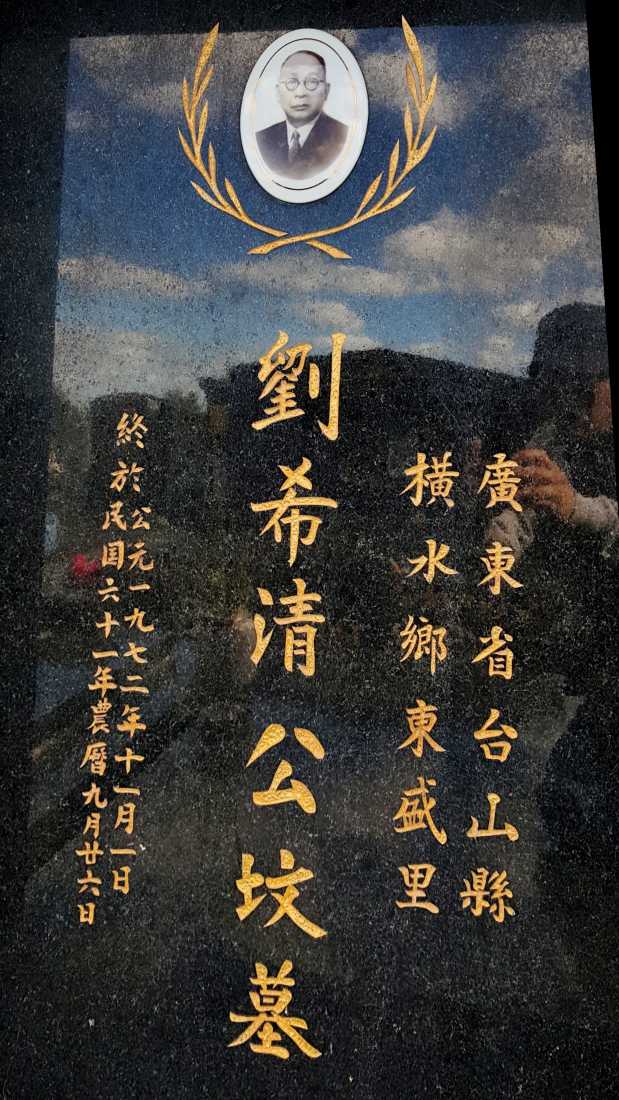 廣東省台山縣
橫水鄉東盛里
劉希清公坟墓
終於公元一九七二年十一月一日
民国六十一年農曆九月廿六日